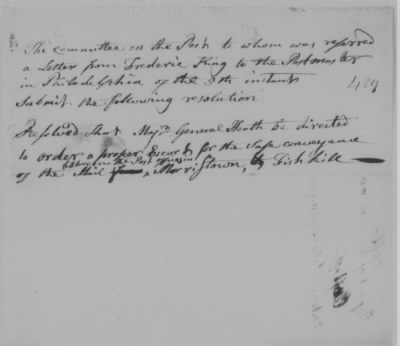 The committee on the Post to whom was referred
a Letter from Frederic King to the Postmaster
in Philadelphia of the 5th instant
489
Submit the following resolution
Resolved That Majr. General Heath be directed
to order a proper Escort for the safe conveyance
between the Post
of the Mail Morristown, by Fish kill